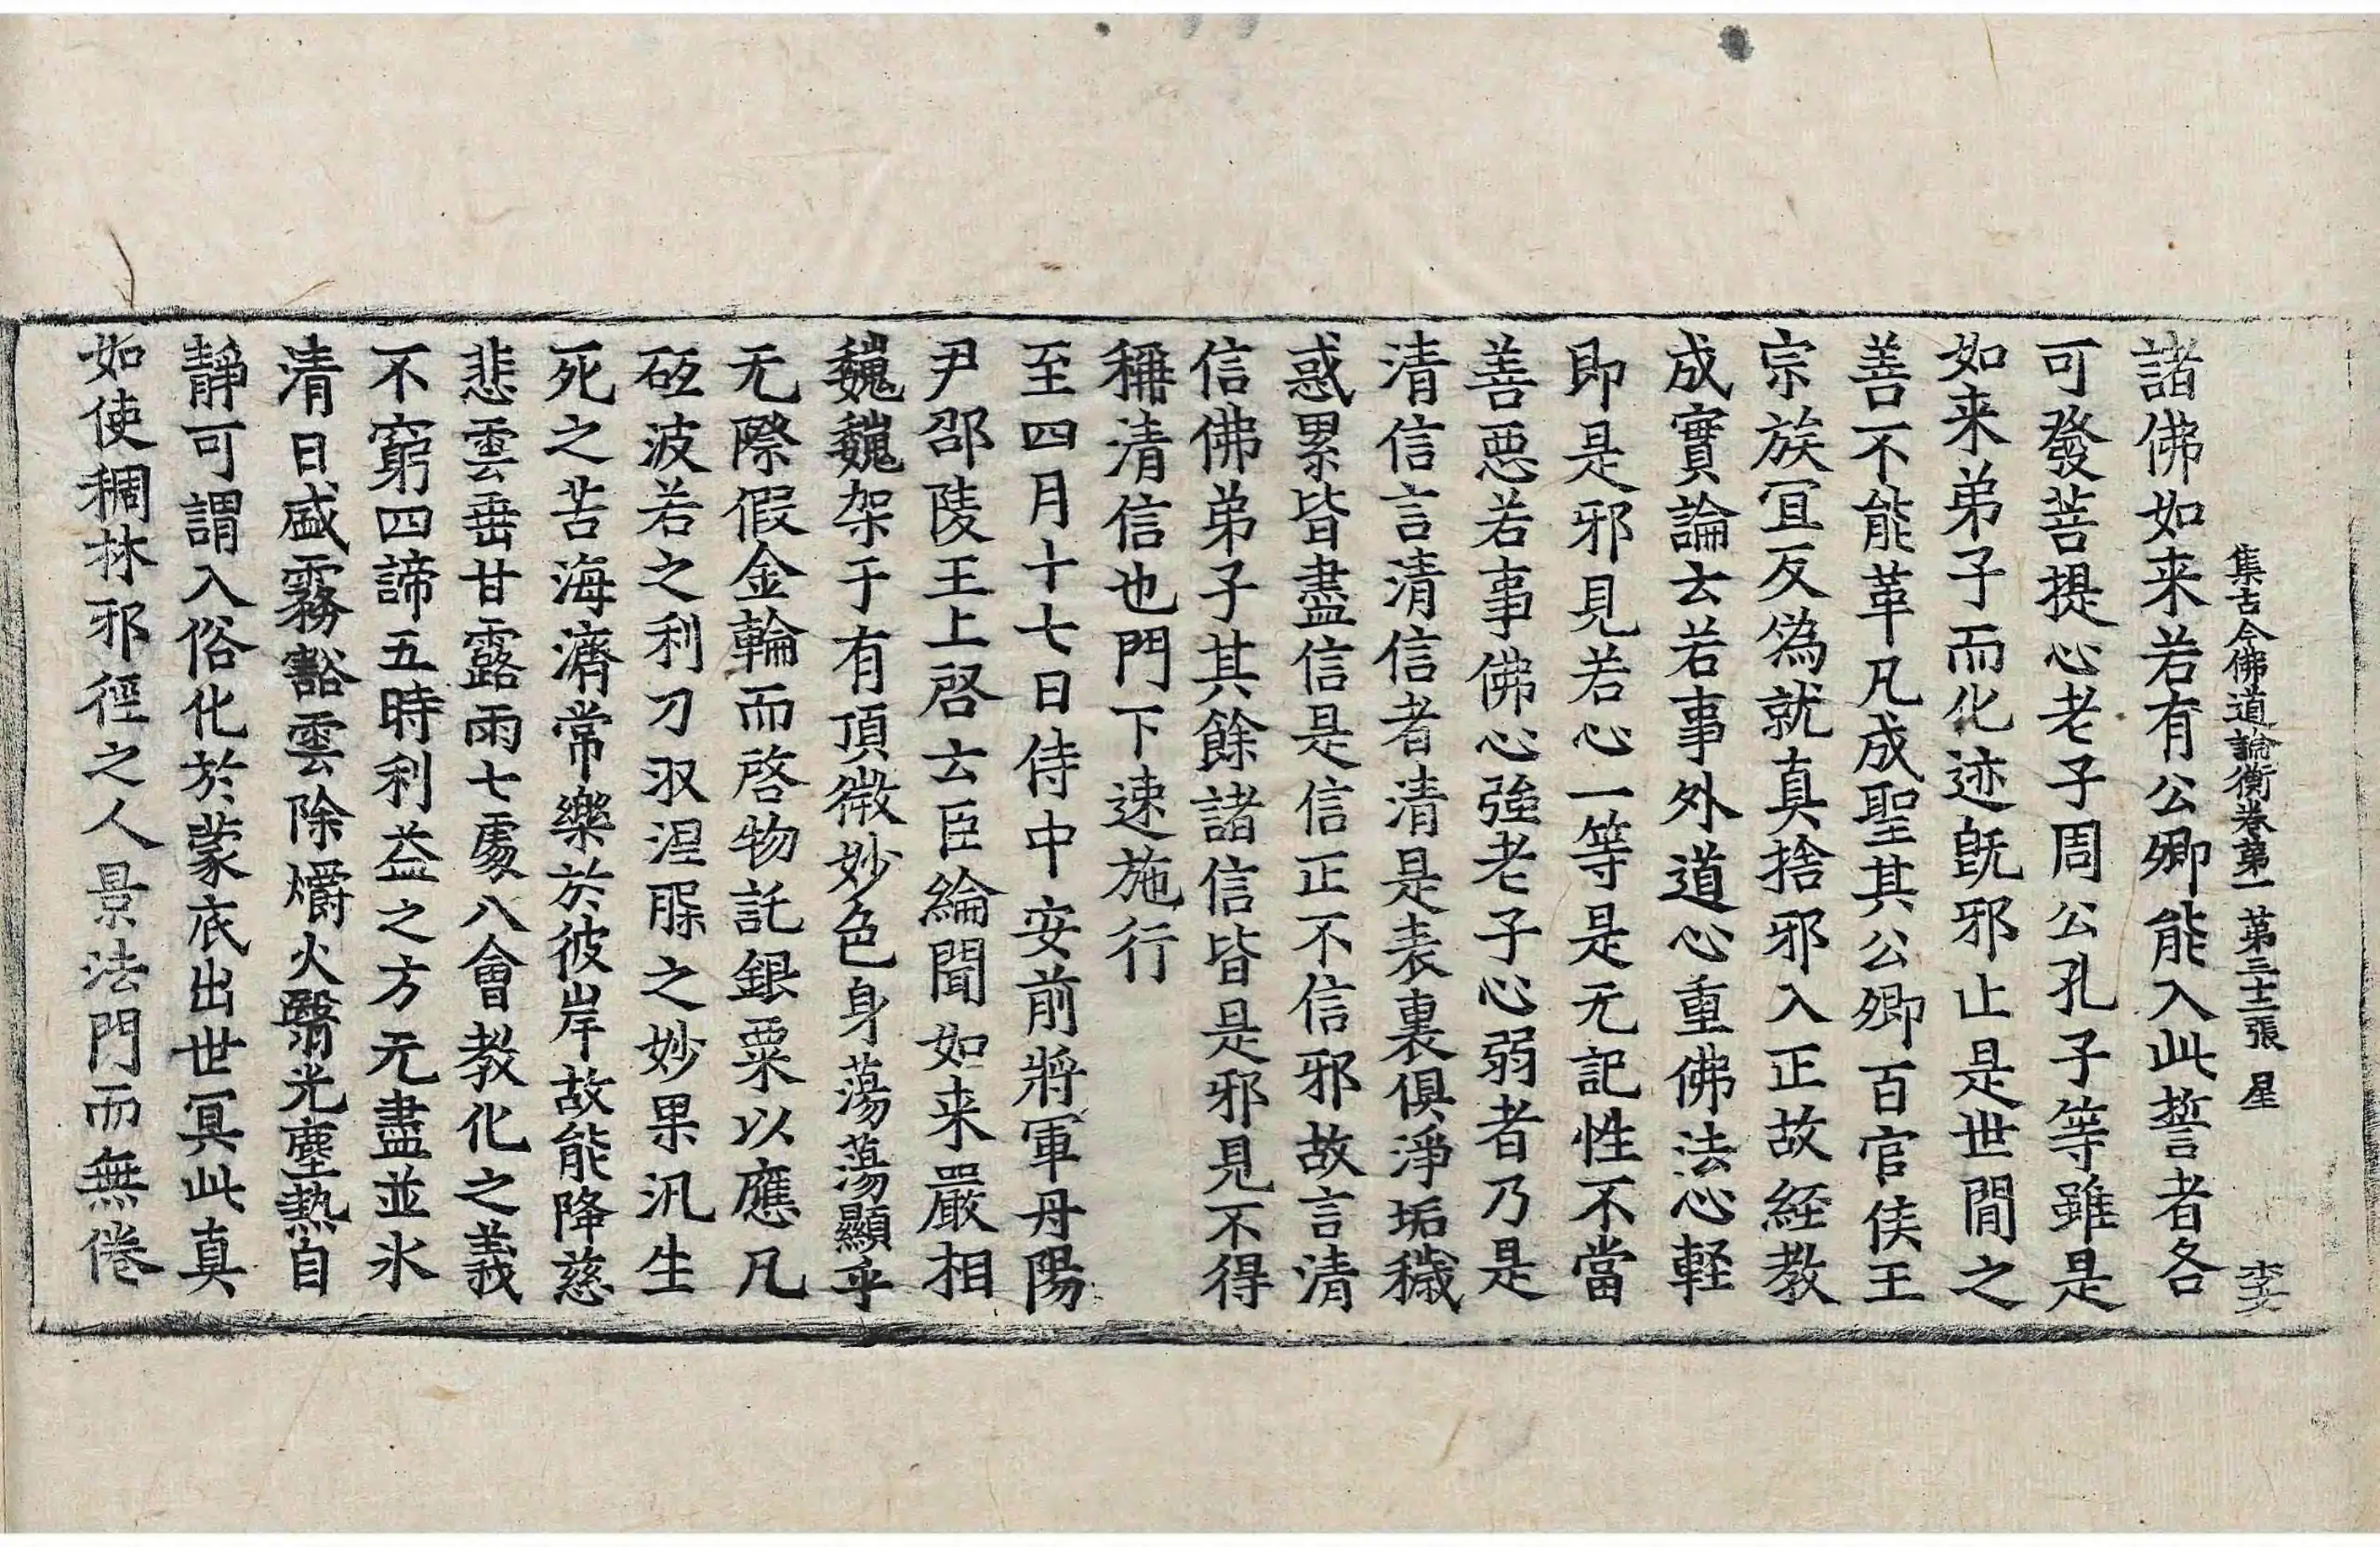 集古今佛道論衡卷第一 第三十二張 星 李文
諸佛如来若有公卿能入此誓者各
可發菩提心老子周公孔子等雖是
如来弟子而化迹旣邪止是世間之
善不能革凡成聖其公卿百官侯王
宗族冝反為就真捨邪入正故経教
成實論云若事外道心重佛法心軽
即是邪見若心一等是无記性不當
善惡若事佛心強老子心弱者乃是
清信言清信者清是表裏俱淨垢穢
惑累皆盡信是信正不信邪故言清
信佛弟子其餘諸信皆是邪見不得
稱清信也門下速施行
至四月十七日侍中安前將軍丹陽
尹邵陵王上啓云臣綸聞如来嚴相
巍巍架于有頂微妙色身蕩蕩顯乎
无際假金輪而啓物託銀粟以應凡
砥波若之利刀収涅槃之妙果汎生
死之苦海濟常樂於彼岸故能降慈
悲雲垂甘露雨七處八會教化之義
不窮四諦五時利益之方无盡並氷
清日盛霧豁雲除爝火翳光塵熱自
靜可謂入俗化於蒙底出世冥此真
如使稠林邪徑之人景法門而無倦